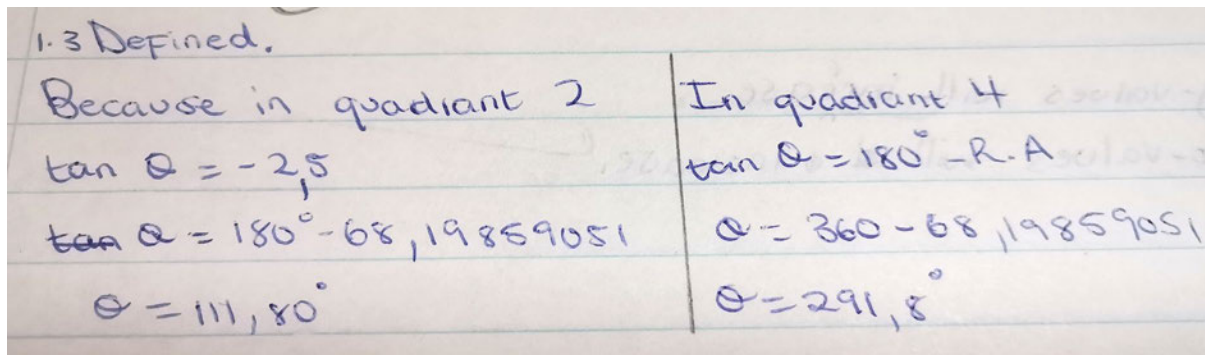 1.3 Defined.
Because in quadrant 2
tan θ = -2,5
tan θ = 180° - 68,19859051
θ = 111,80°
In quadrant 4
tan θ = 180° - R.A
θ = 360 - 68,19859051
θ = 291,8°